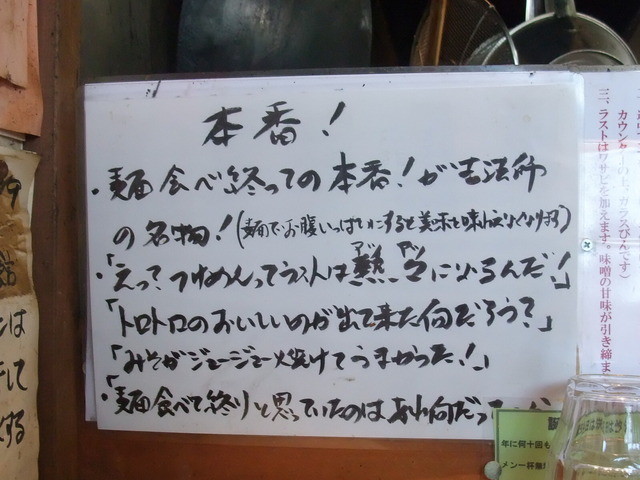 本番！
・麺食べ終っての本番！が吉法師
の名物！(麺でお腹いっぱいにすると美味を味わえなくなります)
・「えっ？つけめんってラストは熱々になるんだ！
アツ アツ
「トロトロのおいしいのが出て来た何だろう？」
「みそがジュージュー焼けてうまかった！」
・「麺食べて終りと思っていたのはあれ何だっ
カウンターの上、ガラスびんです）
三、ラストはワサビを加えます。味噌の甘味が引き締ま
年に何十回も
メン一杯無